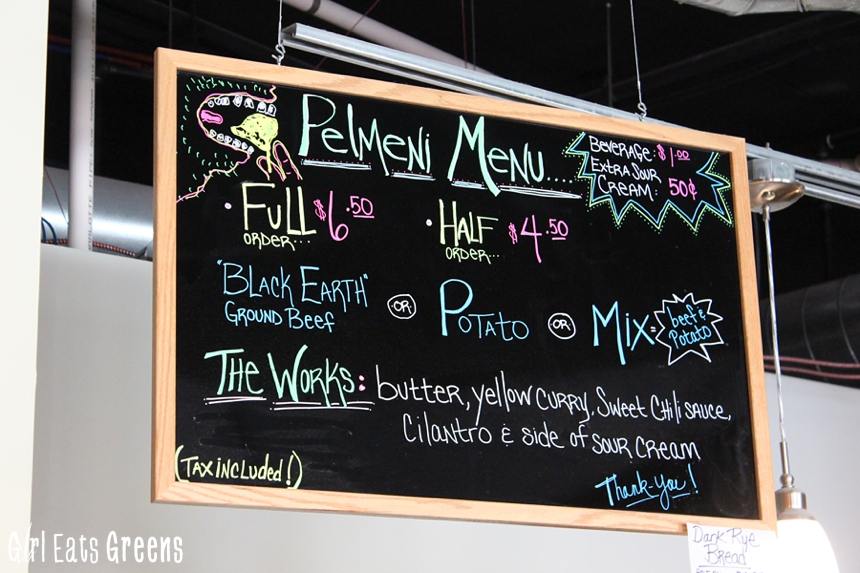 Pelmeni Menu....
Beverage: $1.00
Extra Sour
Cream: 50¢
• Full $6.50
order...
• Half $4.50
order...
"Black Earth"
Ground Beef
or
Potato
or
Mix =
beef &
Potato
The Works: butter, yellow curry, Sweet Chili sauce,
Cilantro & side of sour cream
(Tax included!)
Thank-you!
Dark Rye
Bread
Girl Eats Greens